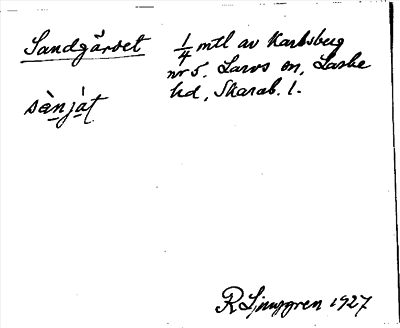 Sandgärdet
sànjàt
1/4 mtl av Karlsberg
nr 5. Larvs sn, Laske
hd, Skarab. l.
R Ljunggren 1927